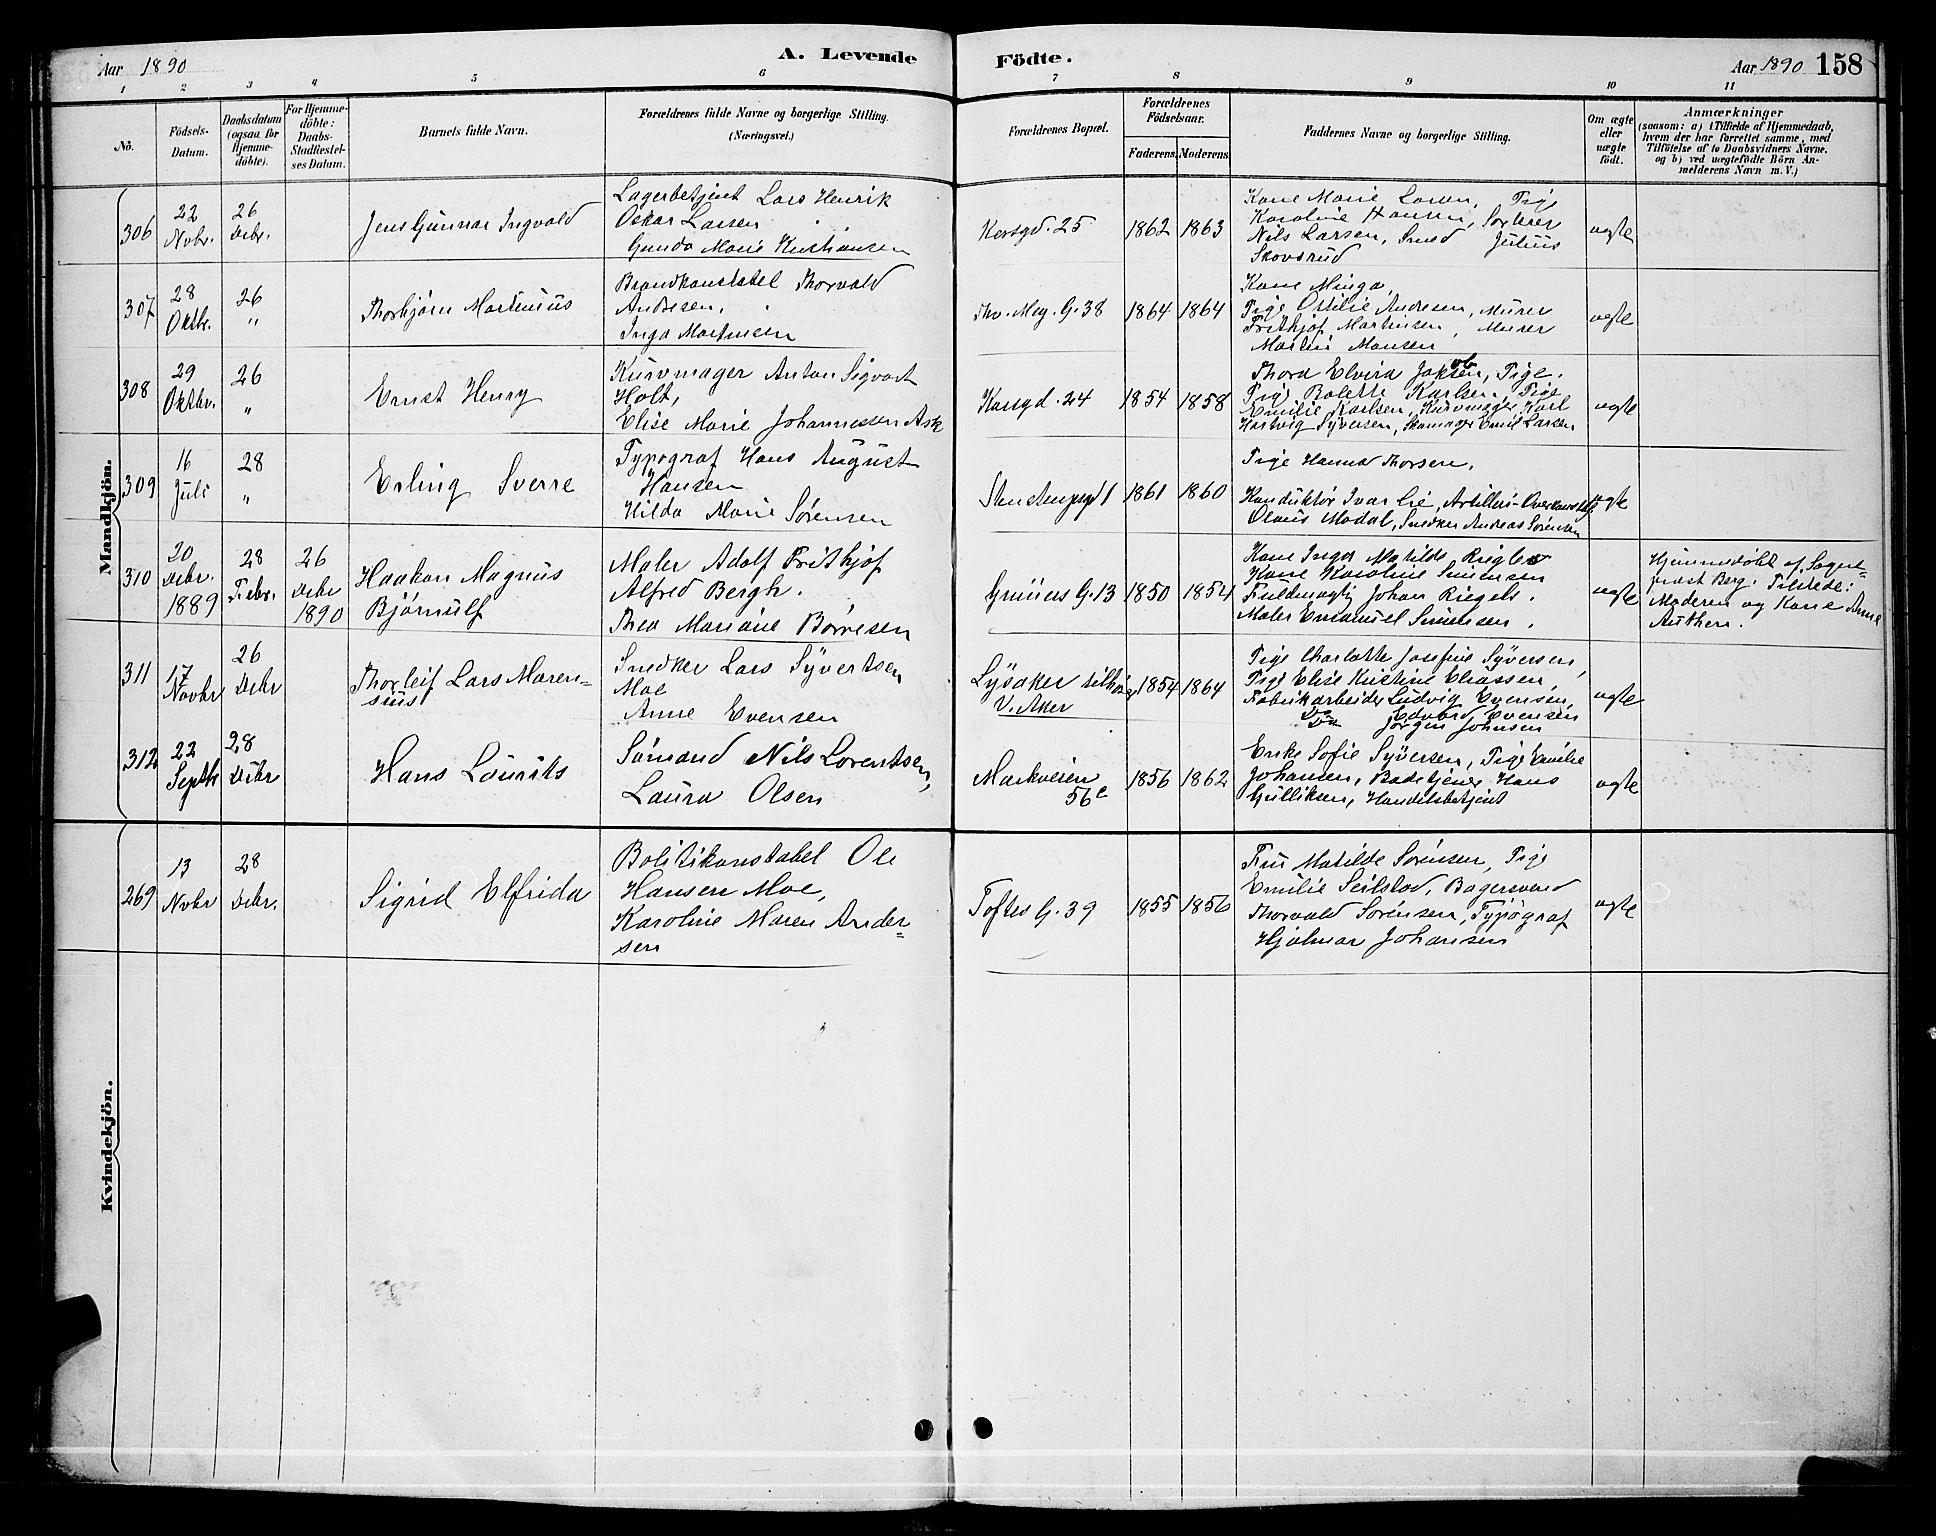 Aar 1890
A. Levende
Födte.
Aar 1890 158
1 2 3 4 5 6 7 8 9 10 11
No.
Födsels-
Datum.
Daabsdatum
(ogsaa for
Hjemme-
döbte).
For Hjemme-
döbte:
Daabs-
Stadfæstel-
ses Datum.
Barnets fulde Navn.
Forældrenes fulde Navne og borgerlige Stilling.
(Næringsvei.)
Forældrenes Bopæl.
Forældrenes
Födselsaar.
Faderens. Moderens.
Faddernes Navne og borgerlige Stilling.
Om ægte
eller
uægte
födt.
Anmærkninger
(saasom: a) i Tilfælde af Hjemmedaab,
hvem der har forrettet samme, med
Tilföielse af to Daabsvidners Navne.
og b) ved uægtefödte Börn An-
melderens Navn m. V.)
Mandkjön.
306
22
Nvbr.
26
Debr.
Jens Gunnar Ingvald
Lagerbetjent Lars Henrik
Oskar Larsen
Gunda Marie Kristiansen
Korsgd. 25
1862 1863
Kone Marie Larsen, Pige
Karoline Hansen, Sorterer
Nils Larsen, Smed Julius
Skovsrud
ægte
307
28
Oktbr.
26
"
Thorbjørn Martinius
Brandkonstabel Thorvald
Andresen,
Inga Martinsen
Thv. Mey. G. 38
1864 1864
Kone Minga,
Pige Otilie Andresen, Murer
Frithjof Martinsen, Murer
Martin Monsen
ægte
308
29
Oktbr.
26
"
Ernst Henry
Kurvmager Anton Sigvart
Holt,
Elise Marie Johannessen Ask
Korsgd. 24
1854 1858
Thora Elvira Jakobsen, Pige.
Pige Bolette Karlsen, Pige
Emilie Karlsen, Kurvmager Karl
Hartvig Syversen, Skomager Emil Larsen
ægte
309
16
Juli
28
"
Erling Sverre
Typograf Hans August
Hansen
Hilda Marie Sørensen
1861 1860
Pige Hanna Thorsen,
Konduktør Ivar Lie, Artilleri-Overkonstabel
Olaus Modal, Snedker Andreas Sørensen
ægte
310
20
Debr.
1889
28
Febr.
26
Debr
1890
Haakon Magnus
Bjørnulf
Maler Adolf Frithjof
Alfred Bergh.
Thea Mariane Børresen
Grüners G. 13
1850 1854
Kone Inga Matilde Riegels
Kone Karoline Simensen
Fuldmægtig Johan Riegels.
Maler Emanuel Simensen,
ægte
Hjemmedøbt af Sogne-
prest Berg. Tilstede:
Moderen og Kone Anne
311
17
Novbr
26
Debr
Thorleif Lars Maren-
sius
Snedker Lars Syvertsen
Moe
Anne Evensen
Lysaker
V. Aker
1854 1864
Pige Charlotte Josefine Syversen,
Pige Elise Kristine Eliassen,
Fabrikarbeider Ludvig Evensen,
Do Edvard Evensen
Jørgen Johnsen
ægte
312
22
Septbr
28
Debr
Hans Laurits
Sømand Nils Lorentsen,
Laura Olsen
Markveien
56c
1856 1862
Enke Sofie Syversen, Pige Emilie
Johansen, Badetjener Hans
Gulliksen, Handelsbetjent
ægte
Kvindekjön.
269
13
Nvbr
28
Debr.
Sigrid Elfrida
Politikonstabel Ole
Hansen Moe,
Karoline Maren Ander-
sen
Toftes G. 39
1855 1856
Fru Matilde Sørensen, Pige
Emilie Seilstad, Bagersvend
Thorvald Sørensen, Typograf
Hjalmar Johansen
ægte